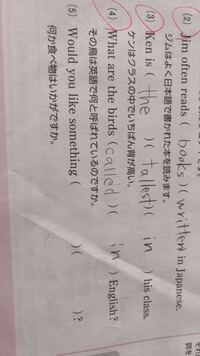 (2) Jim often reads ( books )( written ) in Japanese.
ジムはよく日本語で書かれた本を読みます。
(3) Ken is ( the )( tallest )( in ) his class.
ケンはクラスの中でいちばん背が高い。
(4) What are the birds ( called )( in ) English?
その鳥は英語で何と呼ばれているのですか。
(5) Would you like something ( )( )?
何か食べ物はいかがですか。